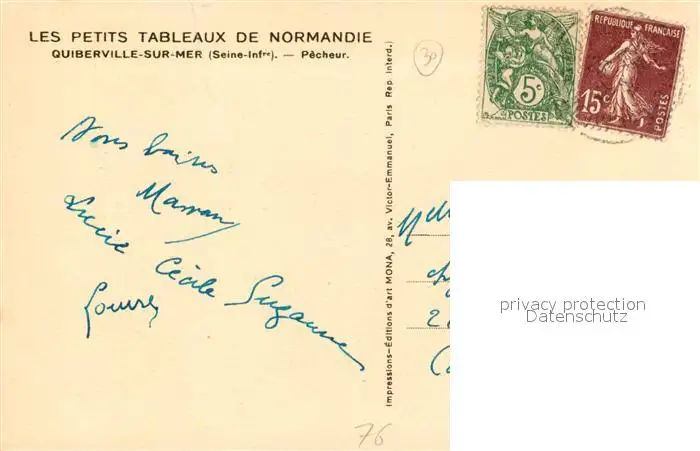 LES PETITS TABLEAUX DE NORMANDIE
QUIBERVILLE-SUR-MER (Seine-Infre). — Pêcheur.
30
5c
POSTES
REPUBLIQUE FRANÇAISE
15c
POSTES
Impressions-Éditions d'art MONA, 28, av. Victor-Emmanuel, Paris Rep. interd.)
Maman
Lucie Cécile Suzanne
Melle
2
privacy protection
Datenschutz
76